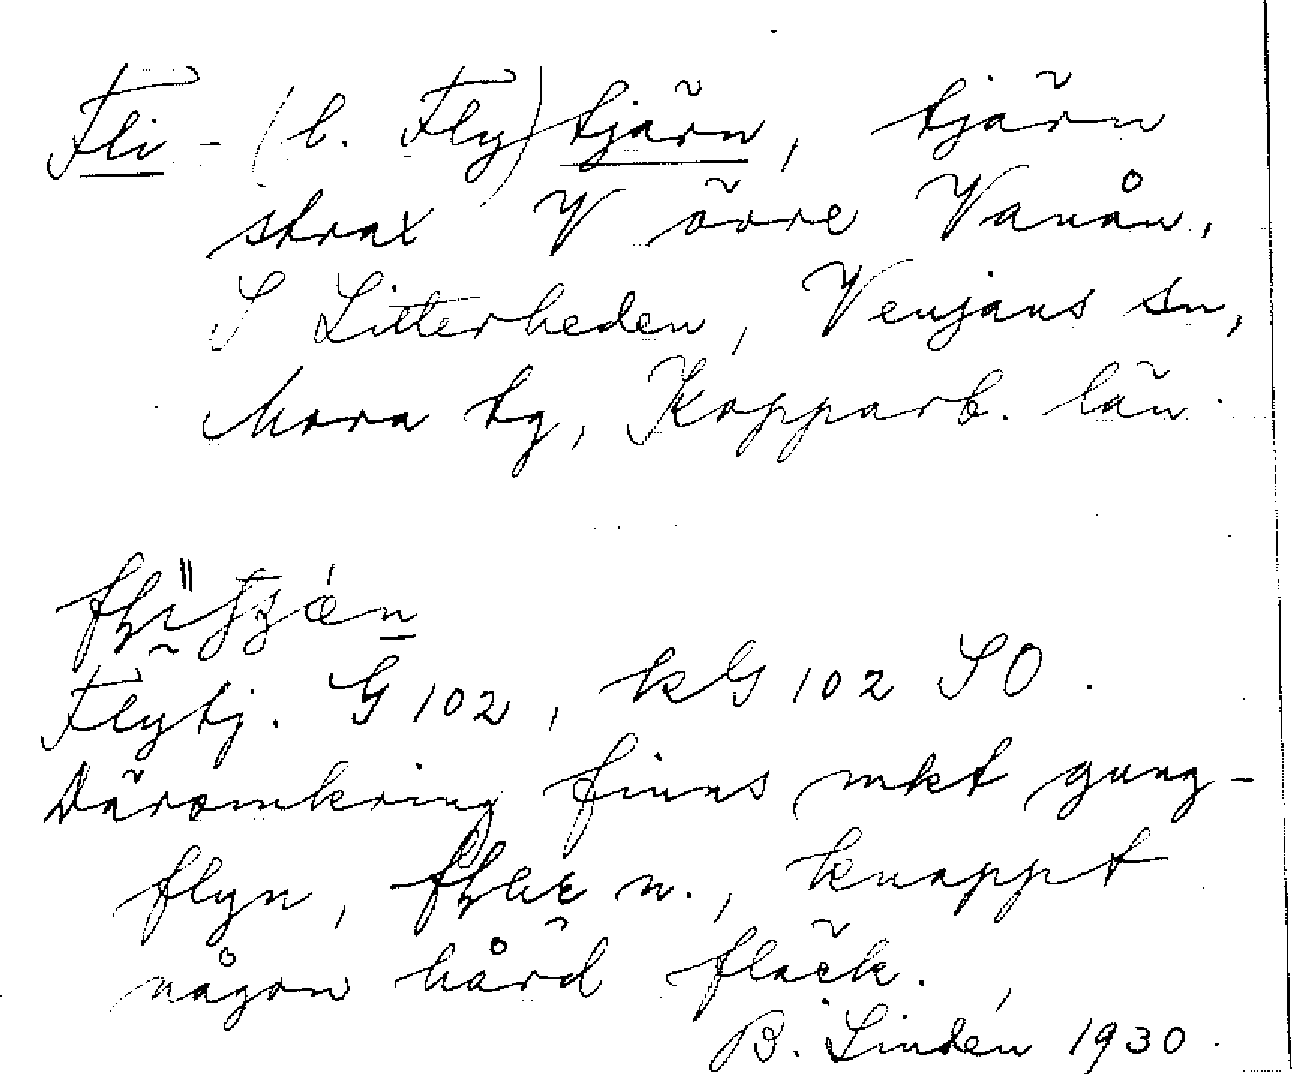 Fli-(l. Fly)tjärn, tjärn
strax V övre Vanån,
S Litterheden, Venjans sn,
Mora tg, Kopparb. län.
Flytj. G 102, kG 102 SO.
Däromkring finns mkt gung-
flyn, n., knappt
någon hård fläck.
B. Lindén 1930.